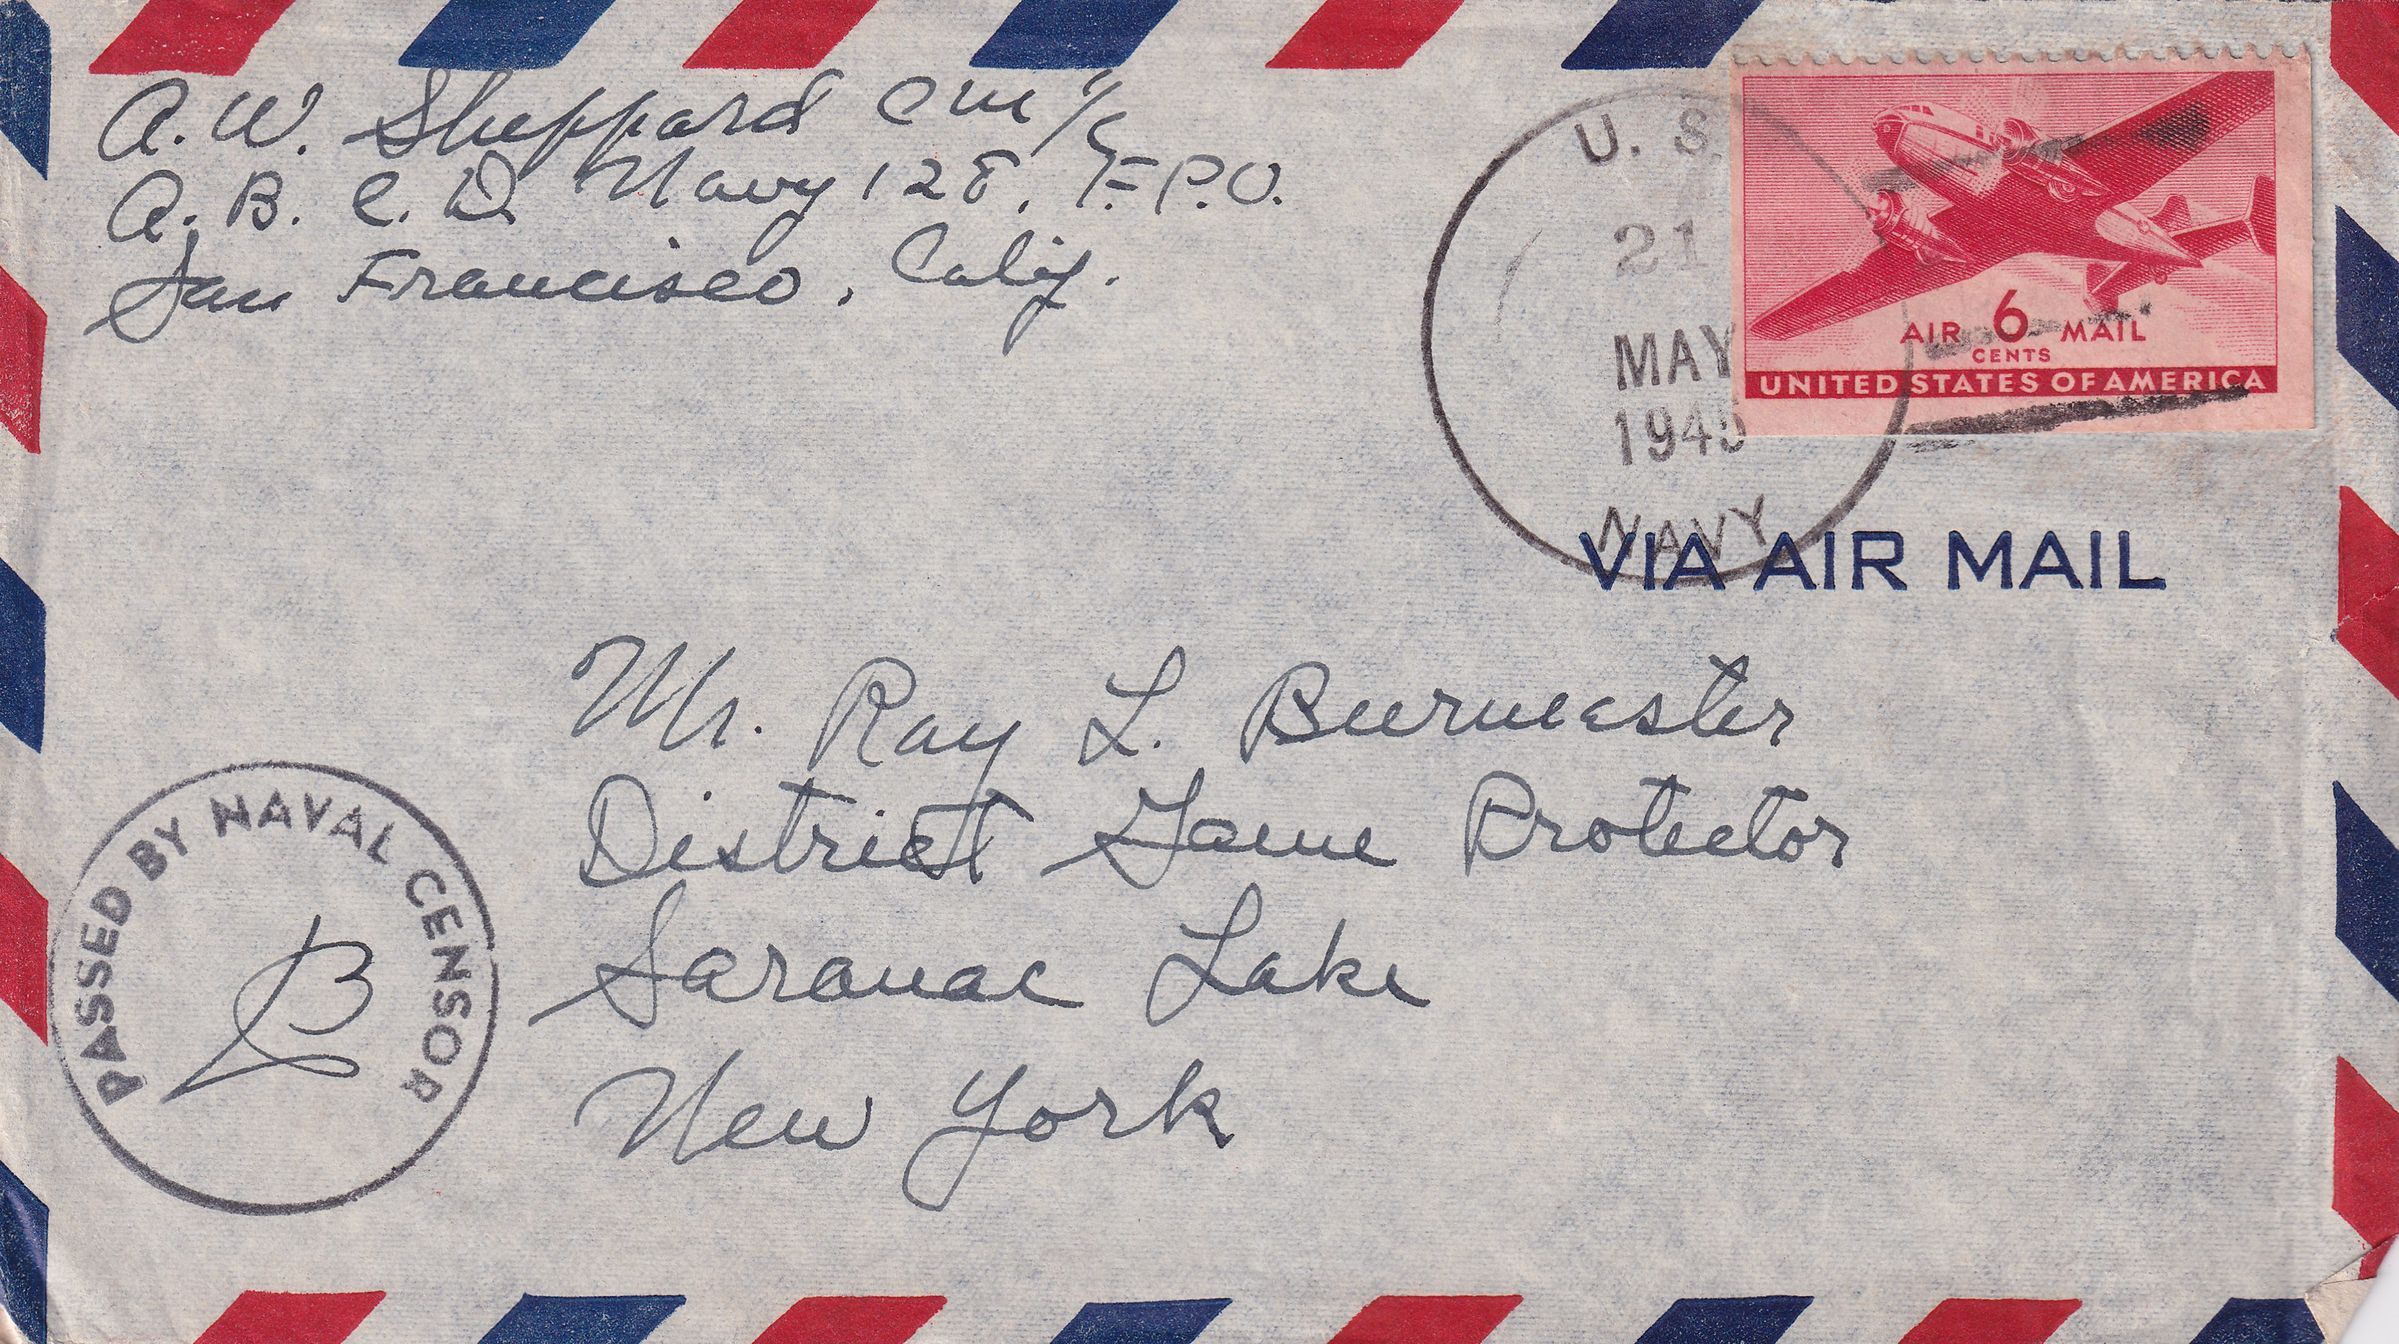 A. W. Sheppard CM 1/c
A. B. C. D. Navy 128, F.P.O.
San Francisco, Calif.
U. S.
21
MAY
1945
NAVY
AIR 6 MAIL
CENTS
UNITED STATES OF AMERICA
VIA AIR MAIL
Mr. Ray L. Burmaster
District Game Protector
Saranac Lake
New York
PASSED BY NAVAL CENSOR
B